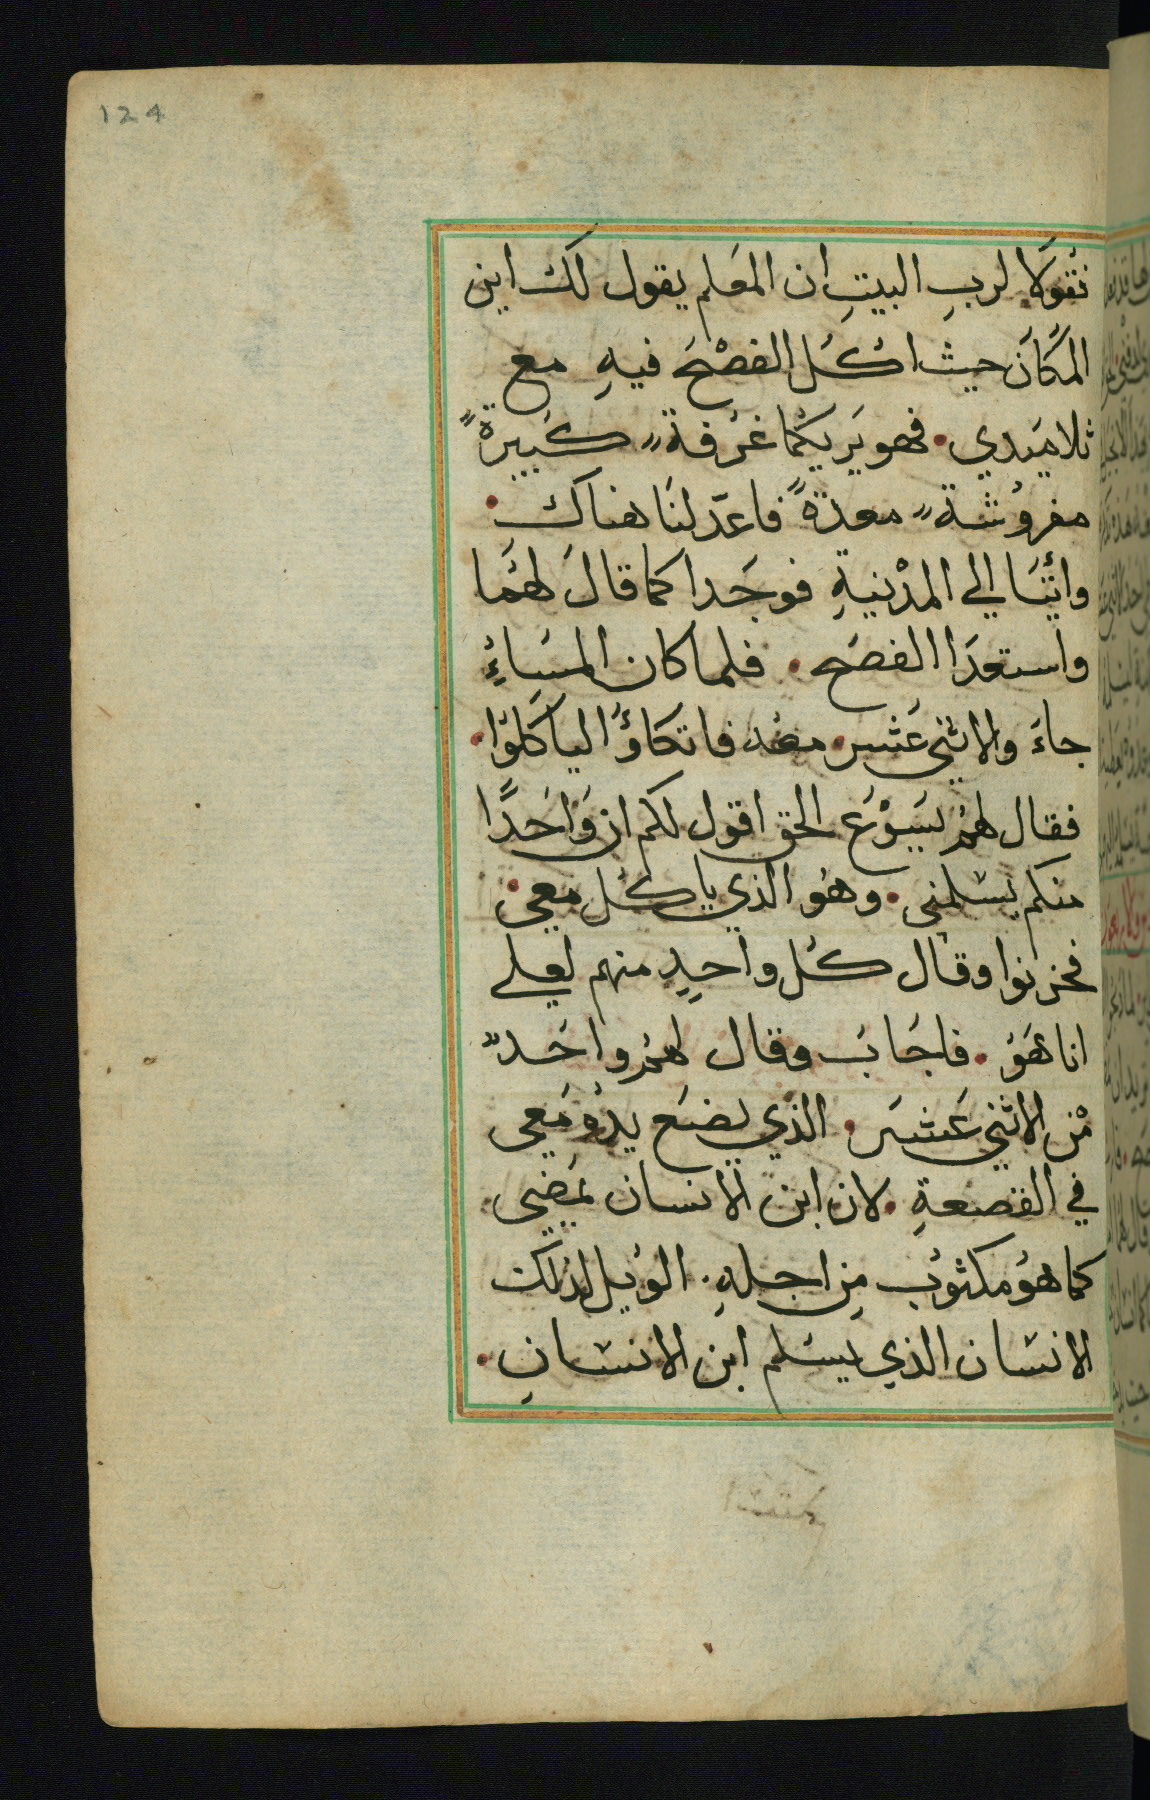 124
نقولا لربِ البيتِ ان المعَلم يقول لك اين
المكَان حيث اكُل الفصْحَ فيهِ مع
تلاميَدي • فهو يَريكمُا غرفةً كَبيرةً
مفروُشةً معدَةً فاعدّ لنَا هناك •
واتيَا الي المدْنيةِ فوجَدا كما قالَ لهمُا
واستعدَا الفصَح • فلما كان المسَاءُ
جاءَ والاثني عَشر معُه فاتكاوُا لياكلوُا •
فقال لهمُ يَسوْعَ الحق اقول لكم ان وَاحَدًا
منكم يسَلمني • وهوُ الذي ياكل معي •
فخزنوا وقال كُل واحدٍ منهم لعلي
انا هَوُ • فاجَابَ وقال لهمُ واحَدٌ
مْن الاثني عَشَر • الذي يضَع يدهُ مَعي
في القصعةِ • لان ابن الانسان يمَضي
كما هوُ مكتوُب مِن اجلهِ • الوُيل لذلك
الانسَان الذي يسَلم ابن الانسَانِ •